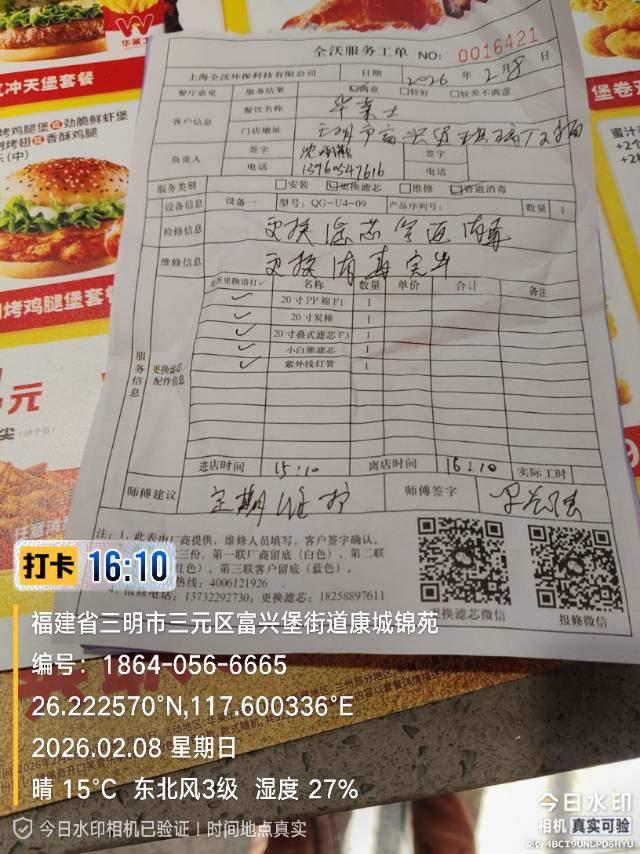 华莱士
冲天堡套餐
烤鸡腿堡或劲脆鲜虾堡
香酥鸡腿
(中)
烤鸡腿堡套
元
全沃服务工单 NO: 0016421
上海全沃环保科技有限公司 日期 2026 年 2月8日
餐厅意见 服务结果 满意 较好 较差不满意
客户信息 餐饮名称 华莱士
门店地址
负责人 签字 签字
电话 13960547616 电话
服务类别 安装 更换滤芯 维修 管道消毒
设备信息 设备一 型号: QG-U4-09 产品序列号: 数量 1
检修信息 更换滤芯管道消毒
维修信息 更换消毒完毕
服务信息 更换滤芯配件信息
是否更换请打✓ 名称 数量 单价 合计 备注
✓ 20寸PP棉F1 1
✓ 20寸炭棒 1
✓ 20寸叠式滤芯F3 1
✓ 小白熊滤芯 1
✓ 紫外线灯管 1
进店时间 15:10 离店时间 16:10 实际工时
师傅建议 定期维护 师傅签字
注: 1、此表由厂商提供, 维修人员填写, 客户签字确认。
三份, 第一联厂商留底 (白色), 第二联
红色), 第三联客户留底 (蓝色)。
热线: 4006121926
4、报修电话: 13732292730, 更换滤芯: 18258897611
更换滤芯微信 报修微信
打卡 16:10
福建省三明市三元区富兴堡街道康城锦苑
编号: 1864-056-6665
26.222570°N,117.600336°E
2026.02.08 星期日
晴 15°C 东北风3级 湿度 27%
今日水印相机已验证 | 时间地点真实
今日水印
相机 真实可验
防伪 4BCT9UNLPD6HYU